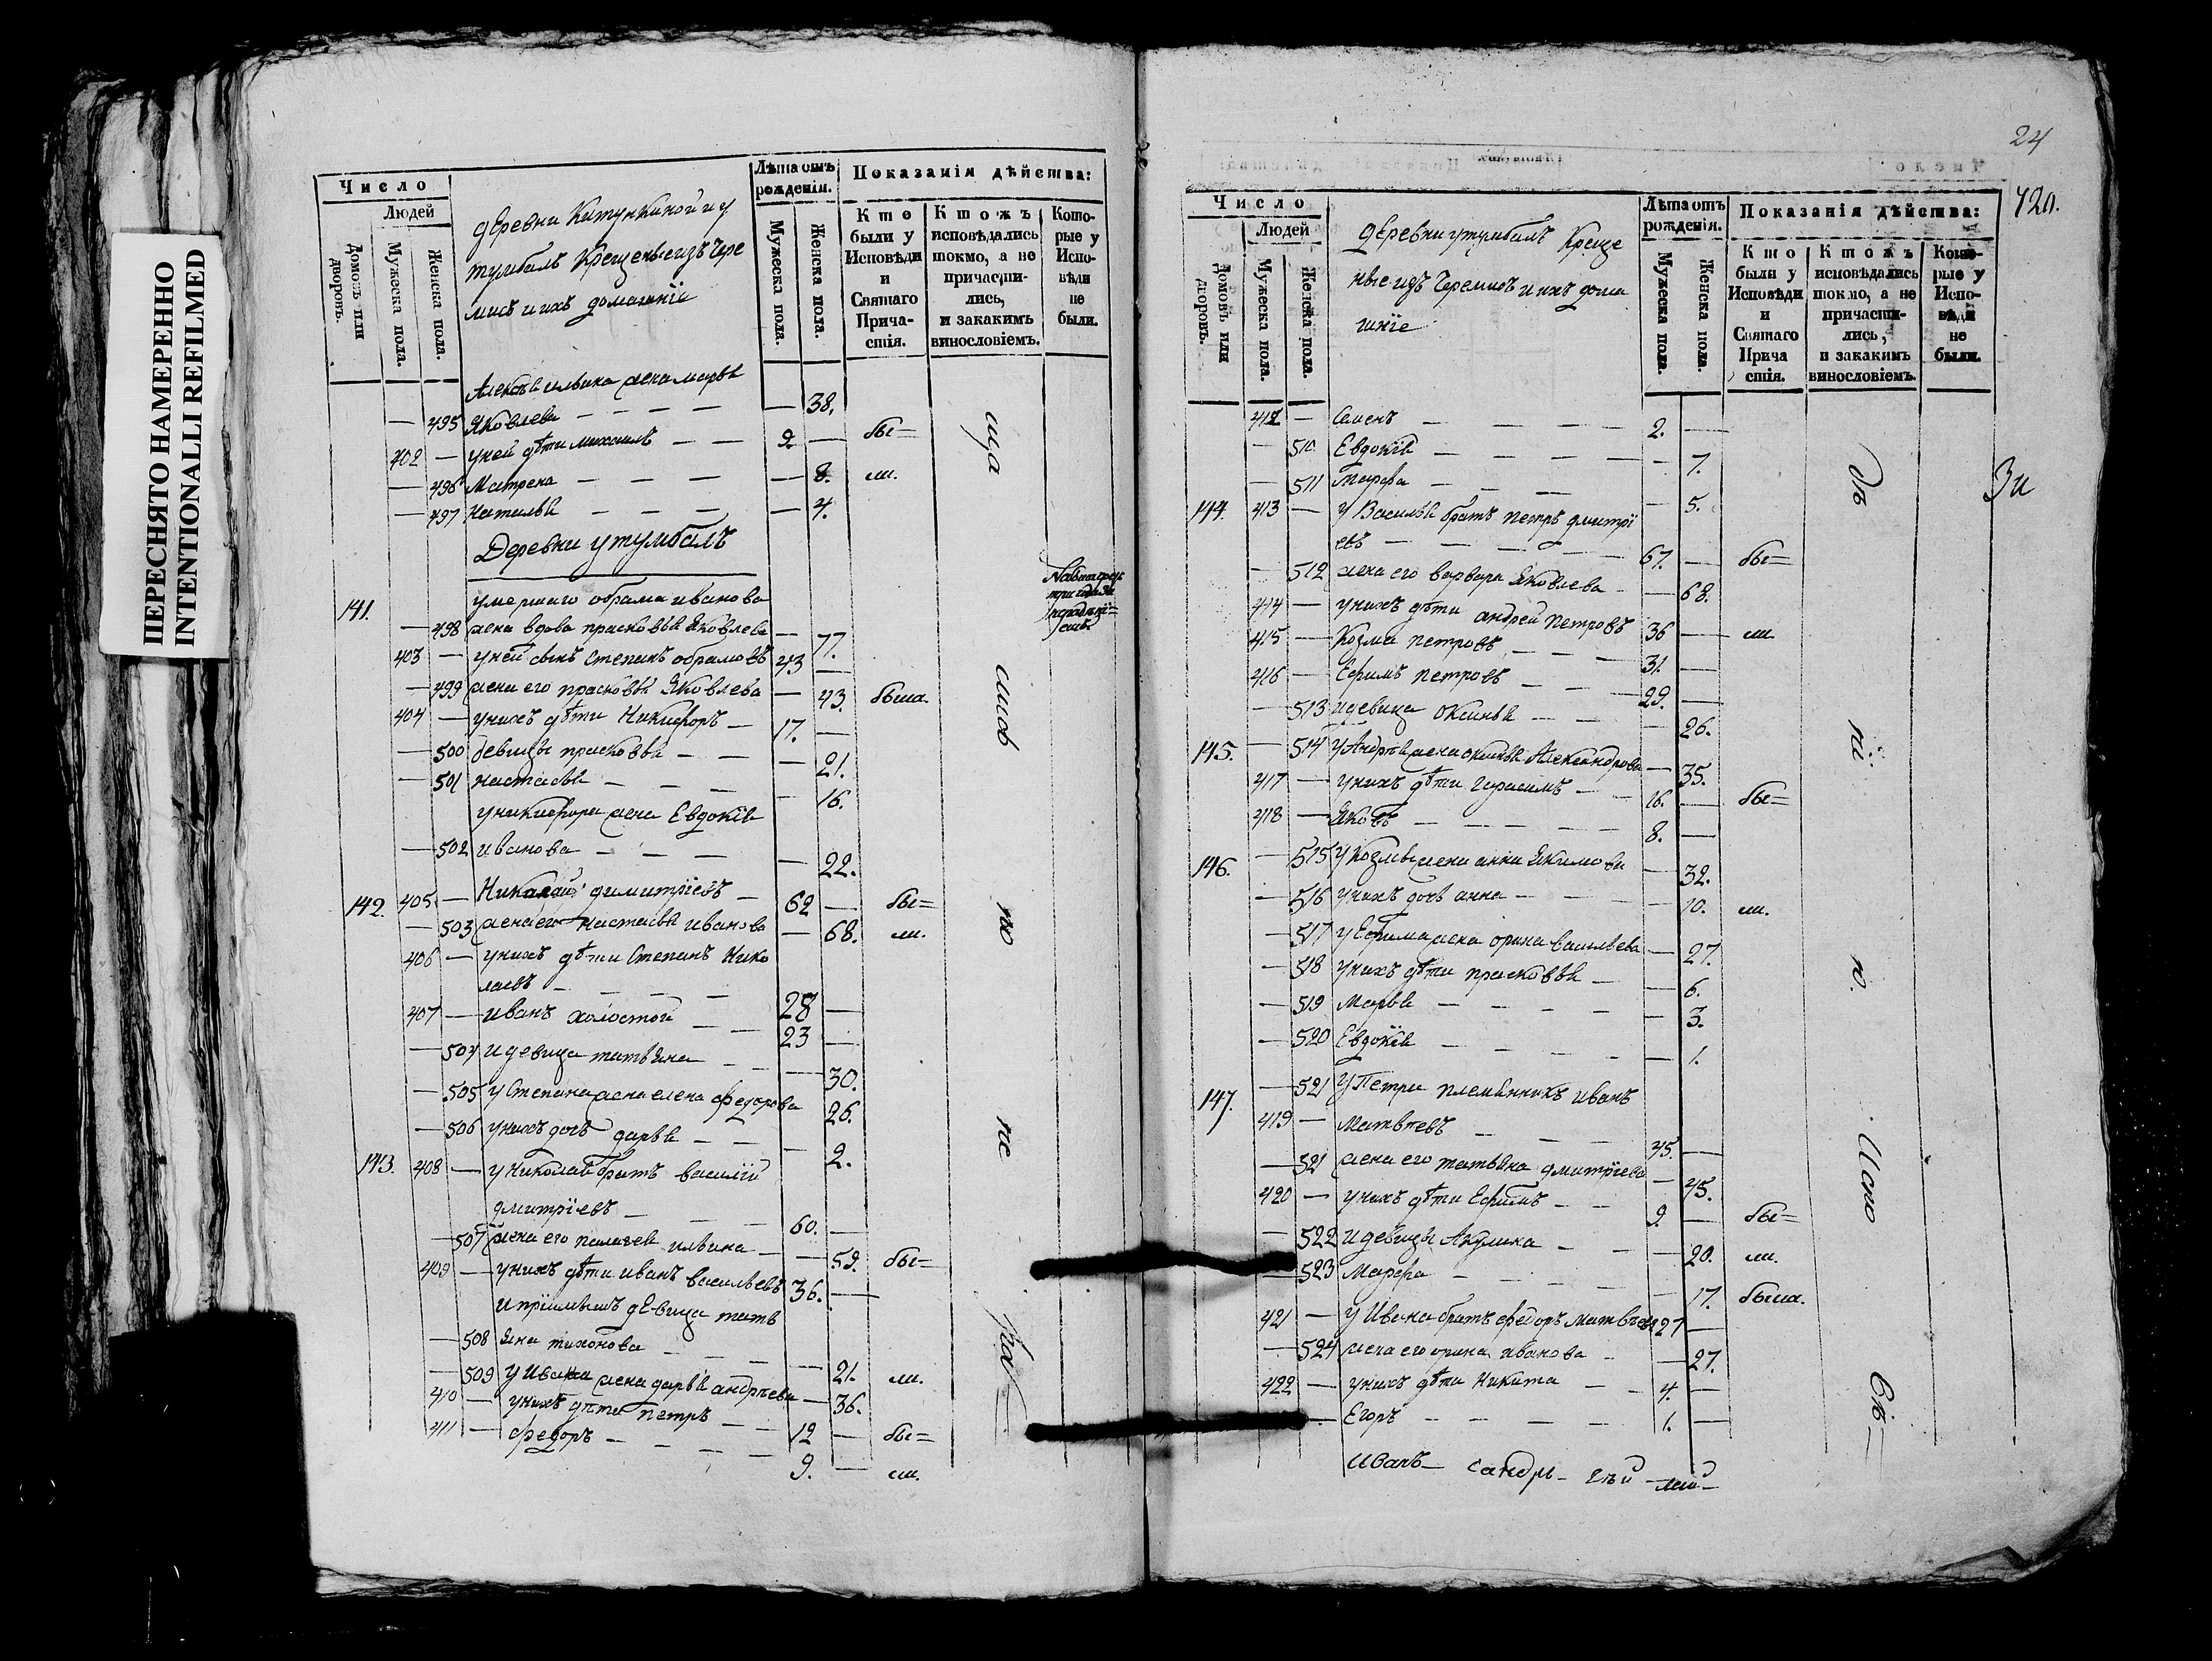 ПЕРЕСНЯТО НАМЕРЕННО
INTENTIONALLI REFILMED
Число
Людей
Домовъ или дворовъ.
Мужеска пола.
Женска пола.
деревни Китункиной и у
тумбалъ Крещеные изъ Чере
мисъ и ихъ домашнїе
Лѣта отъ рожденїя.
Мужеска пола.
Женска пола.
Показанїя дѣйства:
Кто были у Исповѣди и Святаго Причастїя.
Ктожъ исповѣдались токмо, а не причастились, и закакимъ винословїемъ.
Которые у Исповѣди не были.
Алексѣя ильина жена марья
— 495 Яковлева — — — — — 38.
402 — у ней дѣти михаилъ — — 9. — бы=
— 496 Матрена — — — — 8. ли.
— 497 Наталья — — — — 4.
Деревни утумбалъ
141. умершаго обрама иванова
— 498 жена вдова прасковья Яковлева — 77.
403 — у ней сынъ Степанъ обрамовъ 43 —
— 499 жена его прасковья Яковлева — 43. была.
404 — у нихъ дѣти Никифоръ — 17. —
— 500 девицы прасковья — — — 21.
— 501 настасья — — — — 16.
у никифора жена Евдокїя
— 502 иванова — — — — 22.
142. 405 — Николай димитрїевъ — 62 — бы=
— 503 жена его настасья иванова — 68. ли.
406 — у нихъ дѣти Степанъ Нико
лаевъ — — — — 28 —
407 — иванъ холостой — — 23 —
— 504 и девица татьяна — — — 30.
— 505 у Степана жена елена федорова 26.
— 506 у нихъ дочь дарья — — — 2.
143. 408 — у николая братъ василїй
дмитрїевъ — — — 60. —
— 507 жена его пелагея ильина — — 59. бы=
409 — у нихъ дѣти иванъ васильевъ 36. —
и прїимышъ девица тать
— 508 яна тихонова — — — — 21. ли.
— 509 у ивана жена дарья андреева — 36.
410 — у нихъ дѣти петръ — — 12 — бы=
411 — федоръ — — — — 9. — ли.
24
420.
Число
Людей
Домовъ или дворовъ.
Мужеска пола.
Женска пола.
деревни утумбалъ Креще
ные изъ Черемисъ и ихъ дома
шнїе
Лѣта отъ рожденїя.
Мужеска пола.
Женска пола.
Показанїя дѣйства:
Кто были у Исповѣди и Святаго Причастїя.
Ктожъ исповѣдались токмо, а не причастились, и закакимъ винословїемъ.
Которые у Исповѣди не были.
412 — Семенъ — — — — 2. —
— 510. Евдокїя — — — — — 7.
— 511 Марфа — — — — 5.
144. 413 — У Василья братъ петръ дмитрї
евъ — — — — 67. — бы=
— 512 жена его варвара Яковлева — — 68.
414 — у нихъ дѣти андрей петровъ 36 — ли
415 — Козма петровъ — — — 31. —
416 — Ефимъ петровъ — — 29. —
— 513 и девица оксинья — — — 26.
145. — 514 у Андрея жена оксинья Александрова — 35.
417 — у нихъ дѣти герасимъ — — 16. — бы=
418 — Яковъ — — — — 8. —
146. — 515 у Козмы жена анна Якимова — 32.
— 516 у нихъ дочь анна — — — — 10. ли.
— 517 у Ефима жена орина васильева — 27.
— 518 у нихъ дѣти прасковья — — 6.
— 519 Марья — — — — — 3.
— 520 Евдокїя — — — — — 1.
147. — 521 У Петра племянникъ иванъ
419 — матвѣевъ — — — 45. —
— 521 жена его татьяна дмитрїева — 45.
420 — у нихъ дѣти Ефимъ — — 9. — бы=
— 522 и девицы Акулина — — — 20. ли.
— 523 Марфа — — — — — 17. была.
421 — у Ивана братъ федоръ матвѣевъ 27 —
— 524 жена его орина иванова — — 27.
422 — у нихъ дѣти Никита — — 4. —
Егоръ — — — — 1. —
Иванъ —